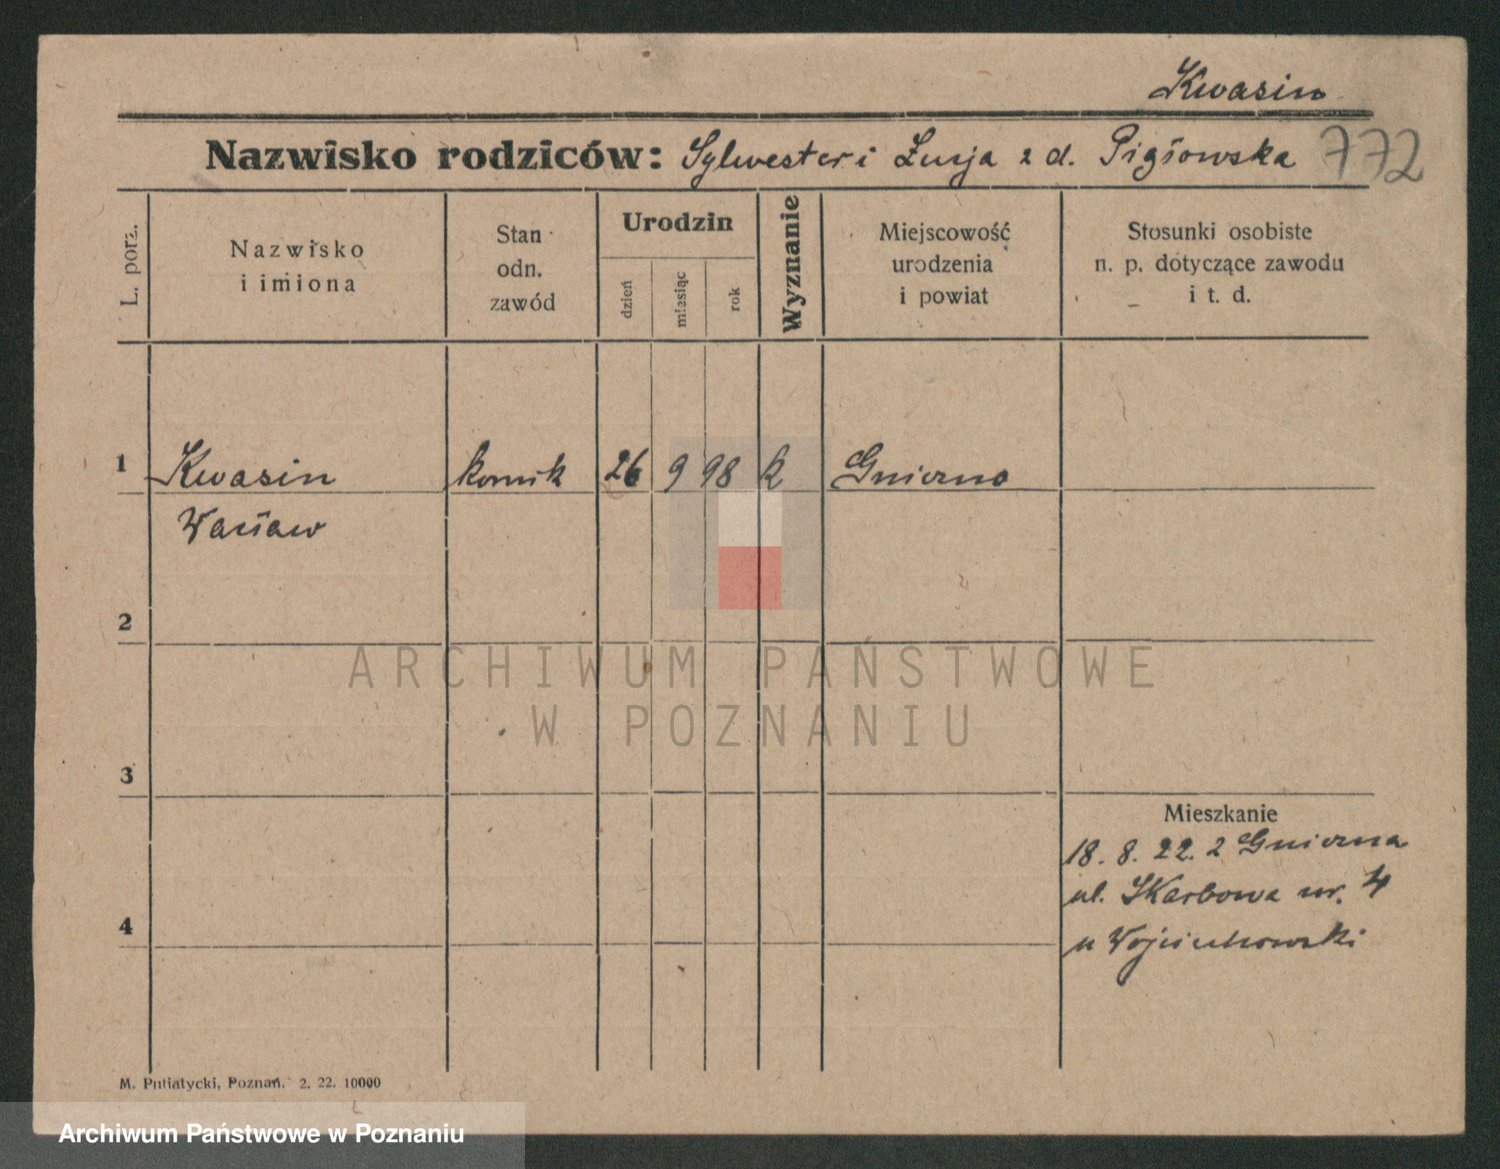 Kwasin
Nazwisko rodziców: Sylwester i Łucja z d. Pigłowska 772
L. porz.
Nazwisko
i imiona
Stan
odn.
zawód
Urodzin
dzień
miesiąc
rok
Wyznanie
Miejscowość
urodzenia
i powiat
Stosunki osobiste
n. p. dotyczące zawodu
i t. d.
1 Kwasin 26 9 98 k Gniezno
Wacław
2
3
4
ARCHIWUM PAŃSTWOWE
W POZNANIU
Mieszkanie
18. 8. 22. z Gniezna
ul. Skarbowa nr. 4
u Wojciechowski
M. Putiatycki, Poznań. 2. 22. 10000
Archiwum Państwowe w Poznaniu